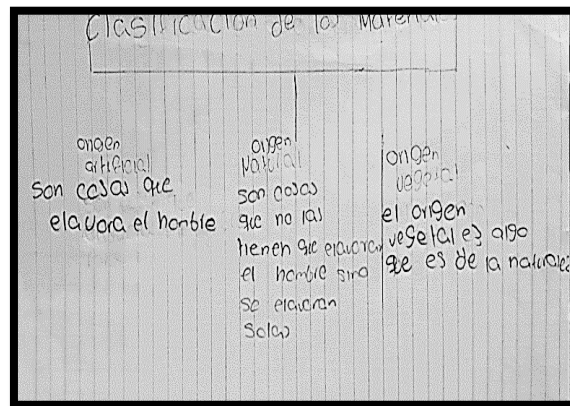 Clasificación de los Materiales
origen
artificial
son cosas que
elavora el honbre
origen
Natural
son cosas
que no las
tienen que elavorar
el hombre sino
se elavoran
Solas
origen
vegetal
el origen
vegetal es algo
que es de la naturaleza